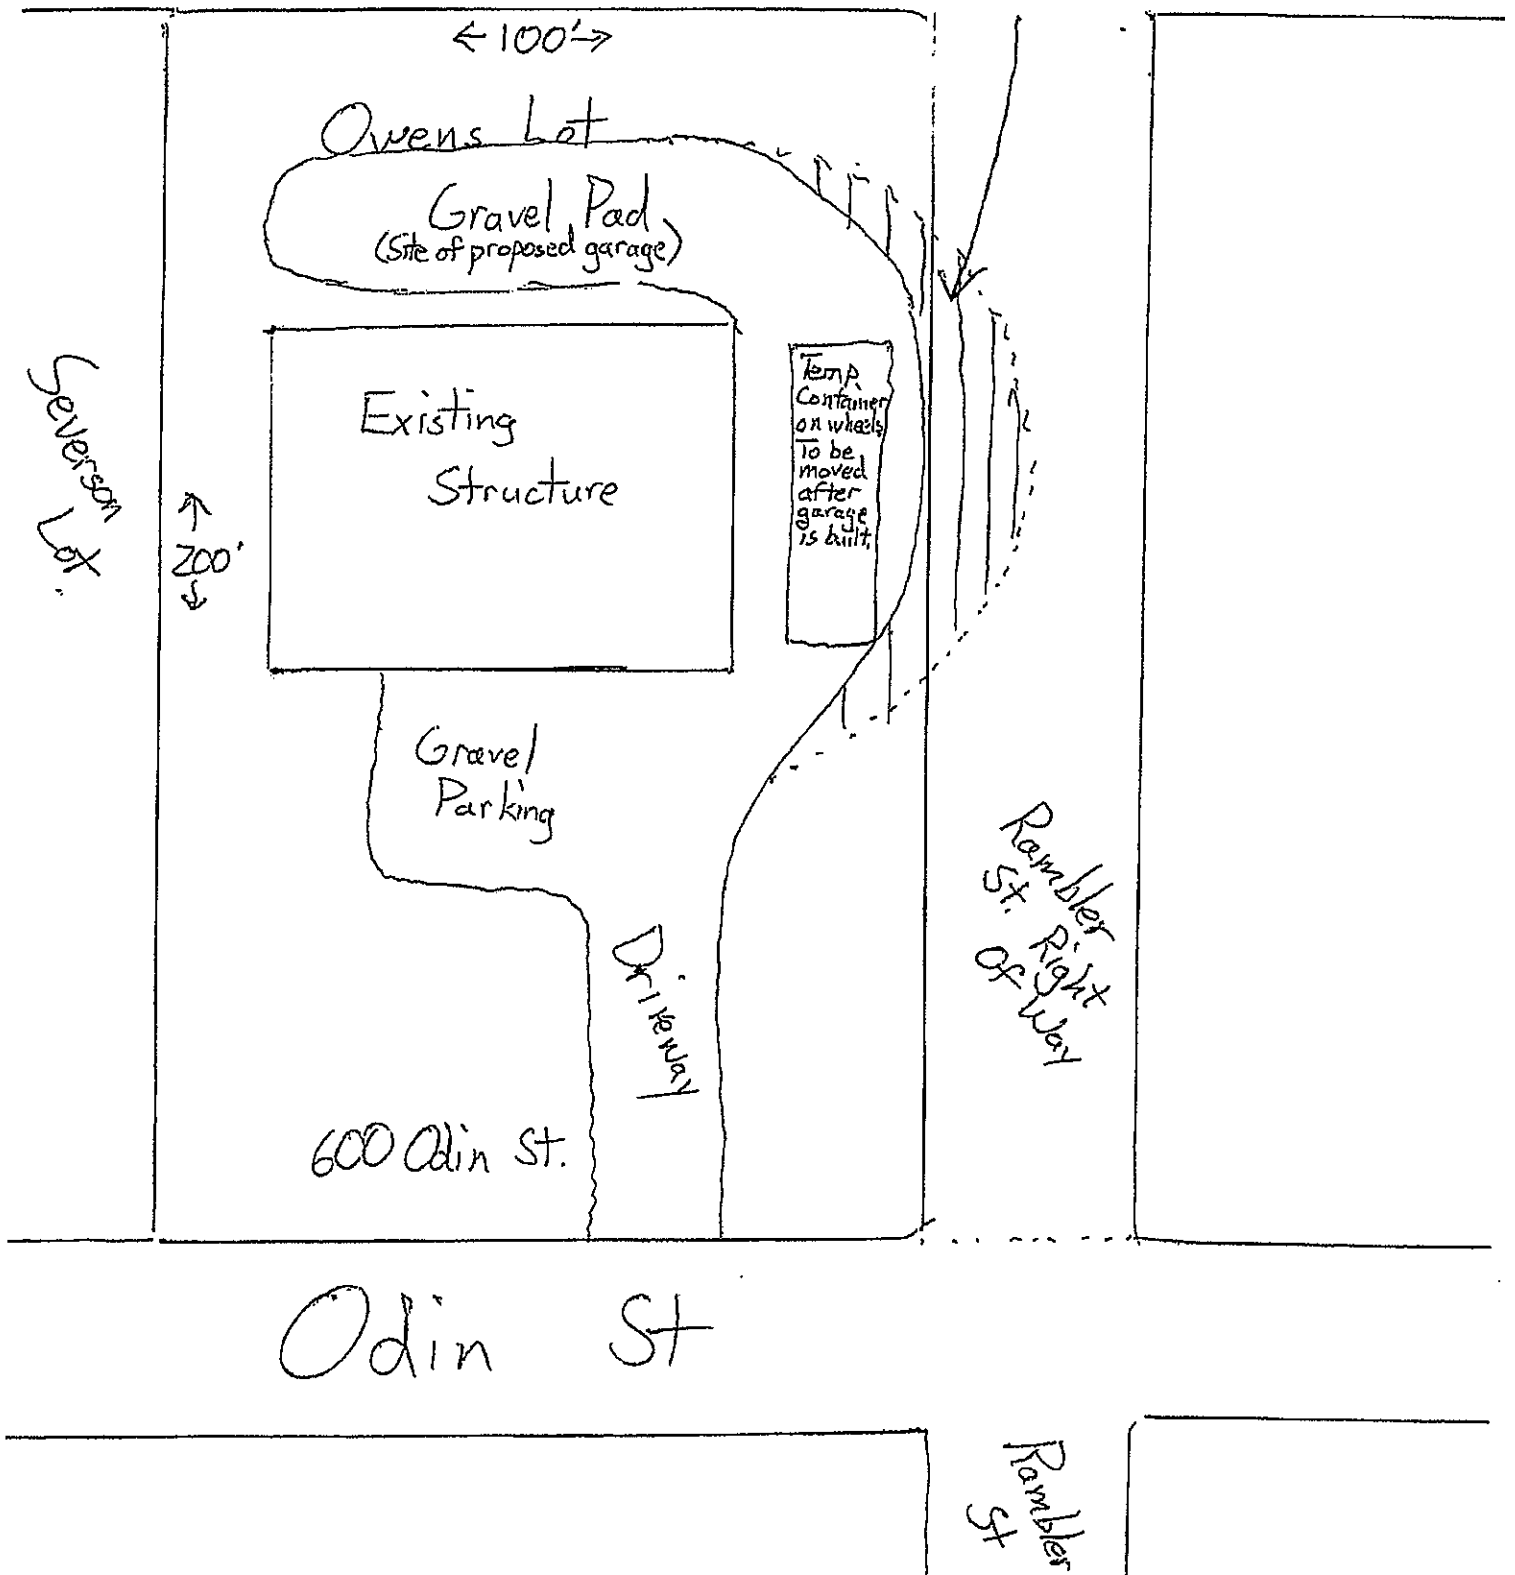 ← 100' →
Owens Lot
Gravel Pad
(Site of proposed garage)
Severson
Lot
↑
200'
↓
Existing
Structure
Temp.
Container
on wheels
To be
moved
after
garage
is built.
Gravel
Parking
Driveway
Rambler
St. Right
of Way
600 Odin St.
Odin St
Rambler
St